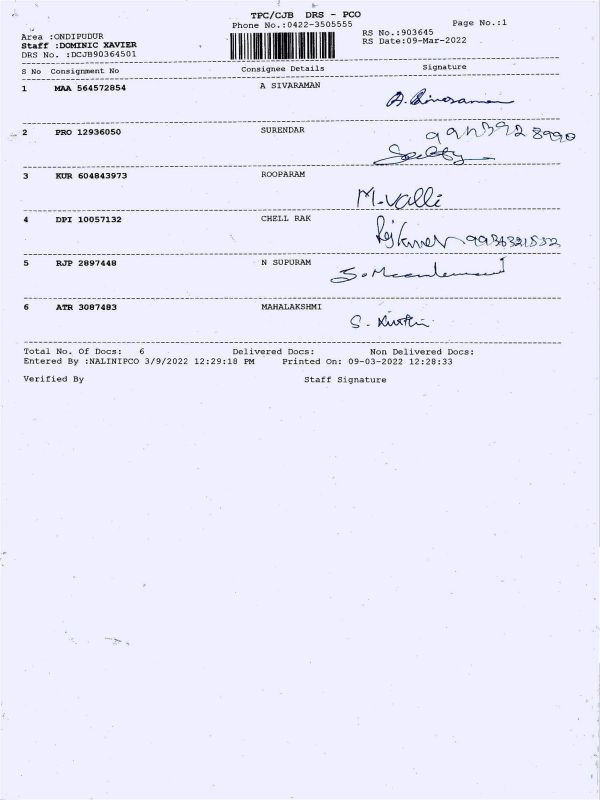 TPC/CJB DRS - PCO
Phone No.:0422-3505555
Page No.:1
Area :ONDIPUDUR
RS No.:903645
Staff :DOMINIC XAVIER
RS Date:09-Mar-2022
DRS No. :DCJB90364501
S No Consignment No Consignee Details Signature
1 MAA 564572854 A SIVARAMAN
2 PRO 12936050 SURENDAR
3 KUR 604843973 ROOPARAM
M.valli
4 DPI 10057132 CHELL RAK
5 RJP 2897448 N SUPURAM
6 ATR 3087483 MAHALAKSHMI
Total No. Of Docs: 6 Delivered Docs: Non Delivered Docs:
Entered By :NALINIPCO 3/9/2022 12:29:18 PM Printed On: 09-03-2022 12:28:33
Verified By Staff Signature